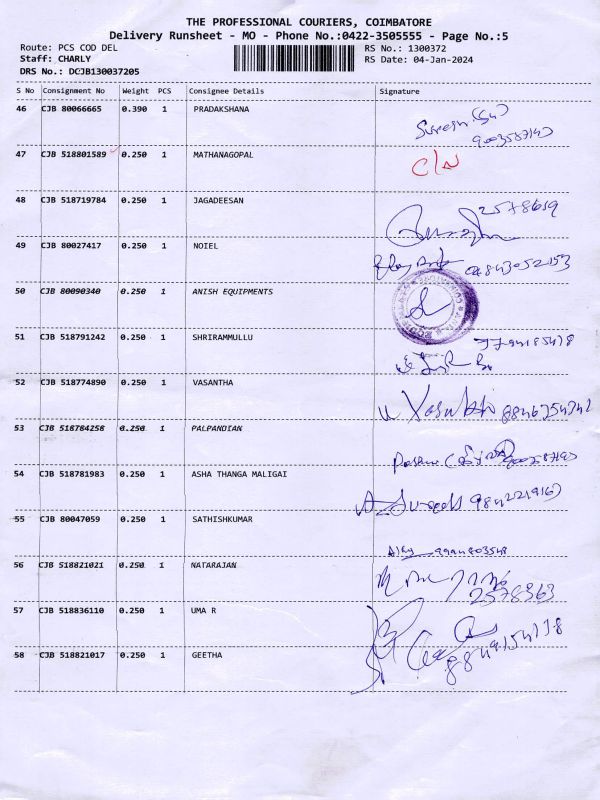 THE PROFESSIONAL COURIERS, COIMBATORE
Delivery Runsheet - MO - Phone No.:0422-3505555 - Page No.:5
Route: PCS COD DEL
RS No.: 1300372
Staff: CHARLY
RS Date: 04-Jan-2024
DRS No.: DCJB130037205
S No Consignment No Weight PCS Consignee Details Signature
46 CJB 80066665 0.390 1 PRADAKSHANA
47 CJB 518801589 0.250 1 MATHANAGOPAL
48 CJB 518719784 0.250 1 JAGADEESAN 2578619
49 CJB 80027417 0.250 1 NOIEL
50 CJB 80090340 0.250 1 ANISH EQUIPMENTS
51 CJB 518791242 0.250 1 SHRIRAMMULLU
52 CJB 518774890 0.250 1 VASANTHA
53 CJB 518784258 0.250 1 PALPANDIAN
54 CJB 518781983 0.250 1 ASHA THANGA MALIGAI
55 CJB 80047059 0.250 1 SATHISHKUMAR
56 CJB 518821021 0.250 1 NATARAJAN 2578363
57 CJB 518836110 0.250 1 UMA R
58 CJB 518821017 0.250 1 GEETHA